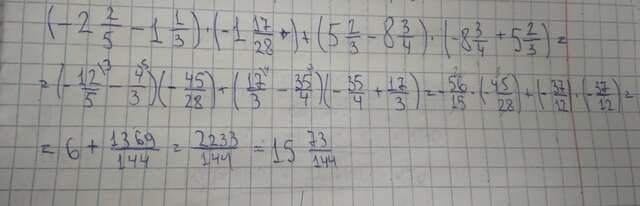 (-2 2/5 - 1 1/3) · (-1 17/28) + (5 2/3 - 8 3/4) · (-8 3/4 + 5 2/3) =
= (-12/5 \3 - 4/3 \5)(-45/28) + (17/3 \4 - 35/4 \3)(-35/4 + 17/3) = -56/15 · (-45/28) + (-37/12) · (-37/12) =
= 6 + 1369/144 = 2233/144 = 15 73/144